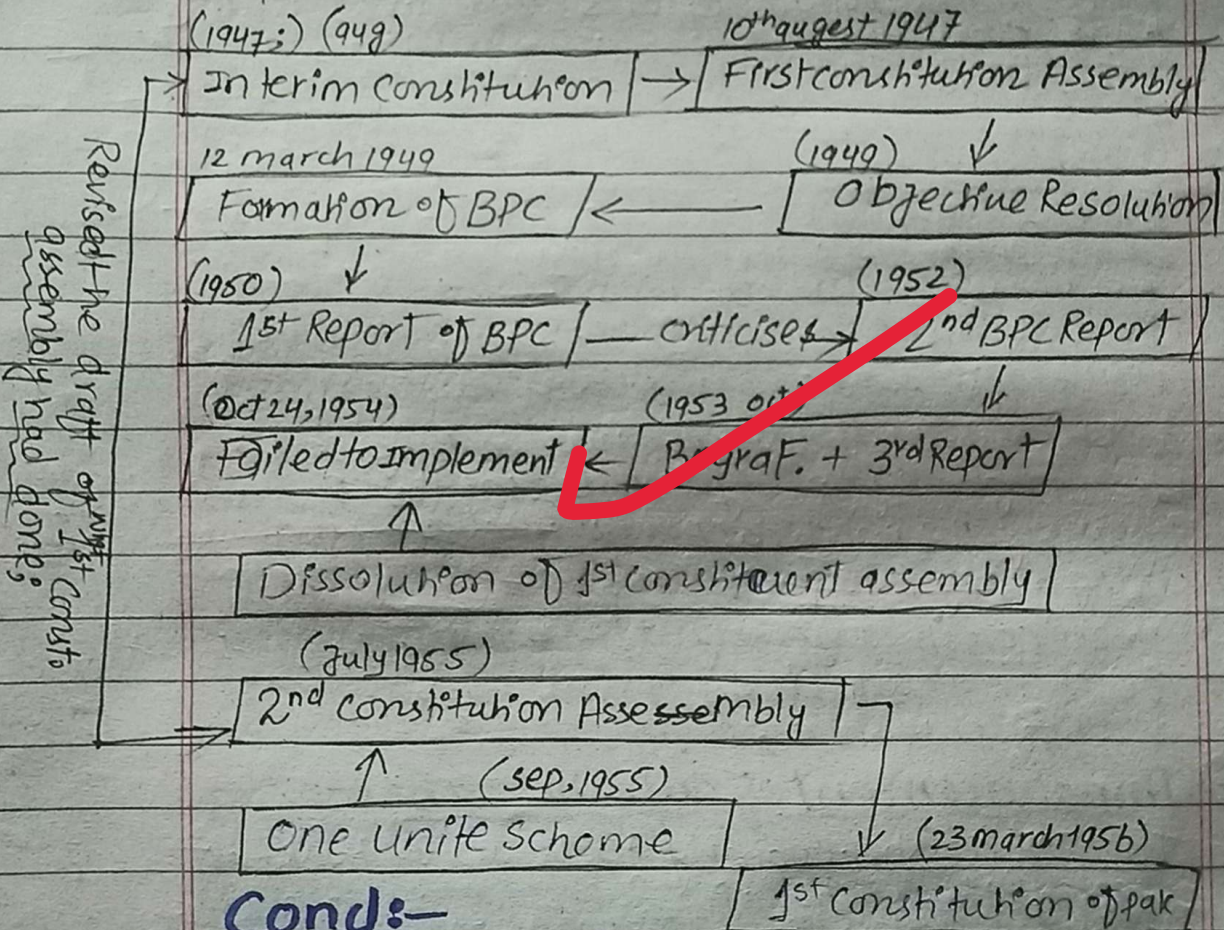 (1947;) (aug)
10th augest 1947
Interim Constitution → First constitution Assembly
12 march 1949
(1949)
Formation of BPC ← Objective Resolution
(1950)
(1952)
1st Report of BPC — criticises → 2nd BPC Report
(Oct 24, 1954)
(1953 oct)
Failed to Implement ← Bogra F. + 3rd Report
Dissolution of 1st constituent assembly
(July 1955)
2nd Constitution Assessembly
(sep, 1955)
One Unite Scheme
(23 march 1956)
1st Constitution of pak
Cond:-
Revised the draft of 1st Const.
assembly had done;